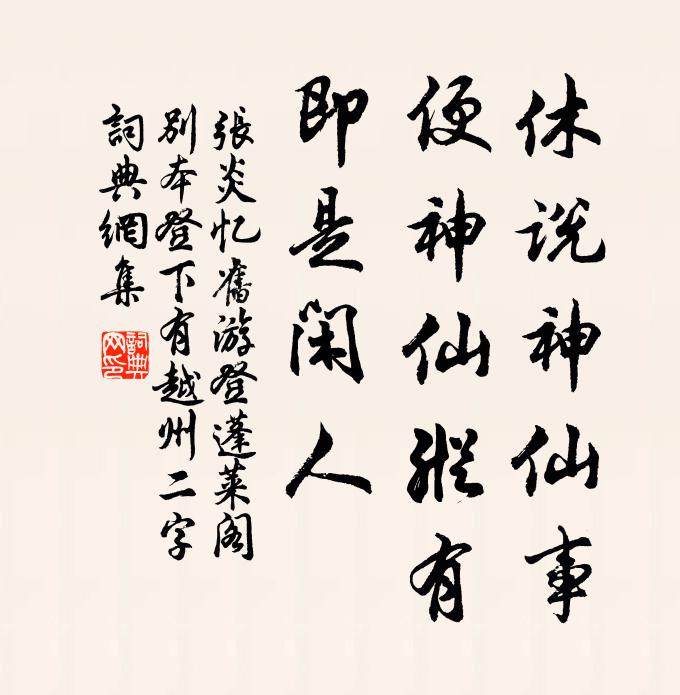 休说神仙事
便神仙縱有
即是闲人
張炎忆舊游登蓬莱阁
别本登下有越州二字
詞典網集
詞典
网印